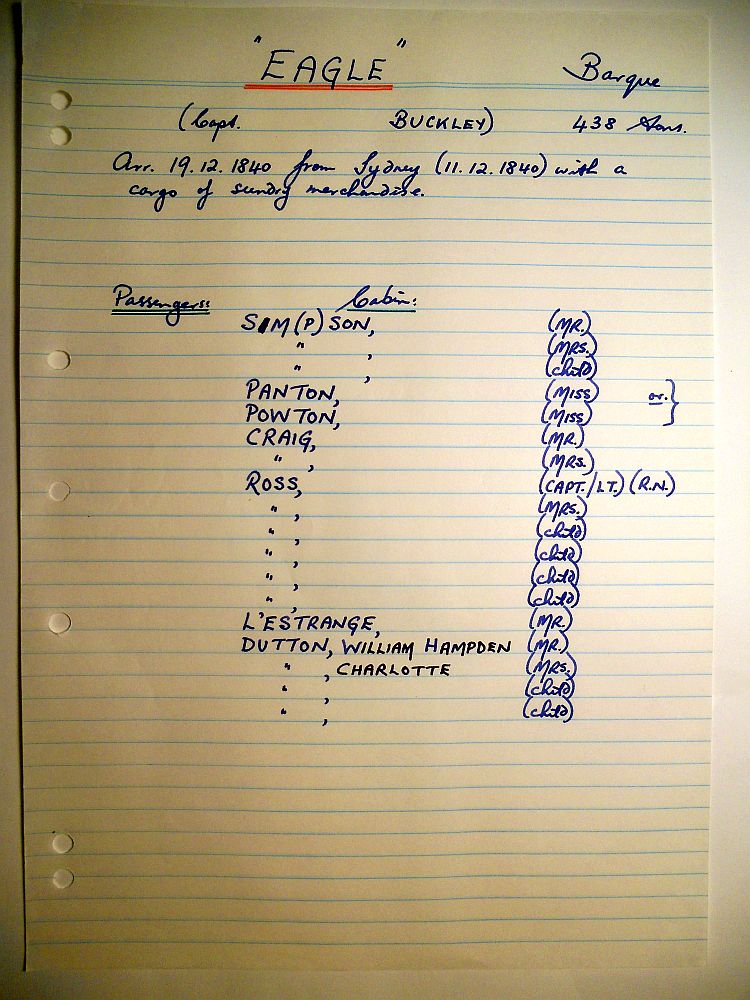 "EAGLE" Barque
(Capt. BUCKLEY) 438 tons.
Arr. 19.12.1840 from Sydney (11.12.1840) with a
cargo of sundry merchandise.
Passengers: Cabin:
SIM(P)SON, (MR.)
" , (MRS.)
" , (child)
PANTON, (MISS) or. }
POWTON, (MISS)
CRAIG, (MR.)
" , (MRS.)
ROSS, (CAPT./LT.) (R.N.)
" , (MRS.)
" , (child)
" , (child)
" , (child)
" , (child)
L'ESTRANGE, (MR.)
DUTTON, WILLIAM HAMPDEN (MR.)
" , CHARLOTTE (MRS.)
" , (child)
" , (child)